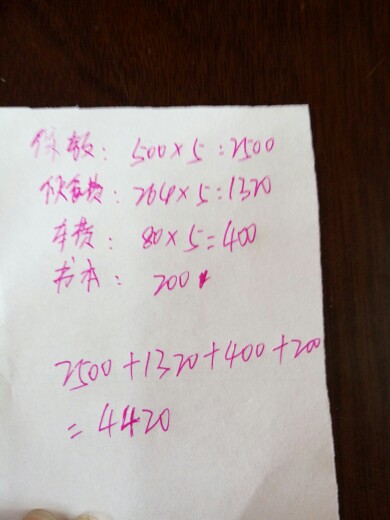 保教: 500×5=2500
伙食费: 264×5=1320
车费: 80×5=400
书本: 200
2500+1320+400+200
=4420